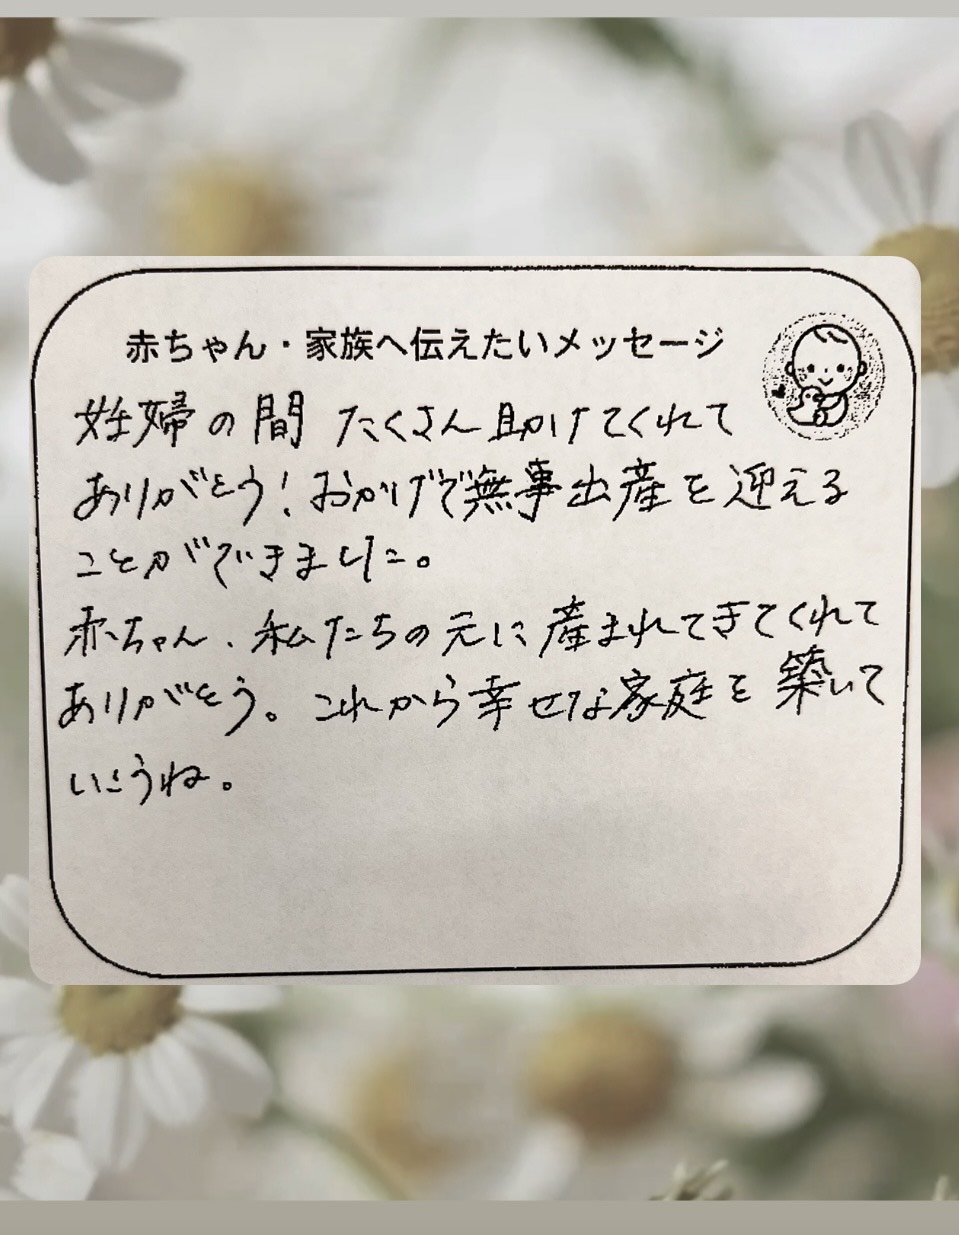 赤ちゃん・家族へ伝えたいメッセージ
妊婦の間 たくさん助けてくれて
ありがとう！おかげで無事出産を迎える
ことができました。
赤ちゃん、私たちの元に産まれてきてくれて
ありがとう。これから幸せな家庭を築いて
いこうね。